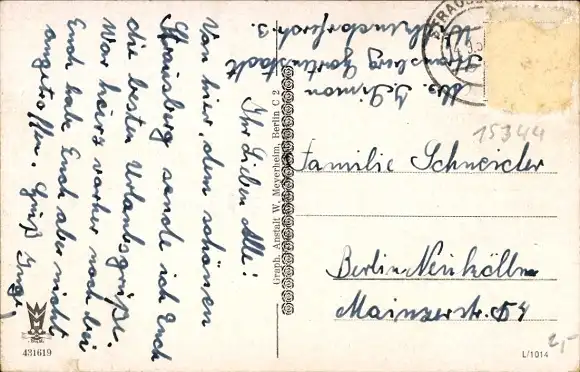 Ihr Lieben Alle!
Von hier, dem schönen
Strausberg sende ich Euch
die besten Urlaubsgrüße.
War heirs vorher noch bei
Euch habe Euch aber nicht
angetroffen. Gruß Inge,
Strausberg Gartenstadt
3.
STRAUS
15344
Familie Schneider
Berlin-Neukölln
Mainzerstr. 54
2,-
Graph. Anstalt W. Meyerheim, Berlin C 2
431619
L/1014